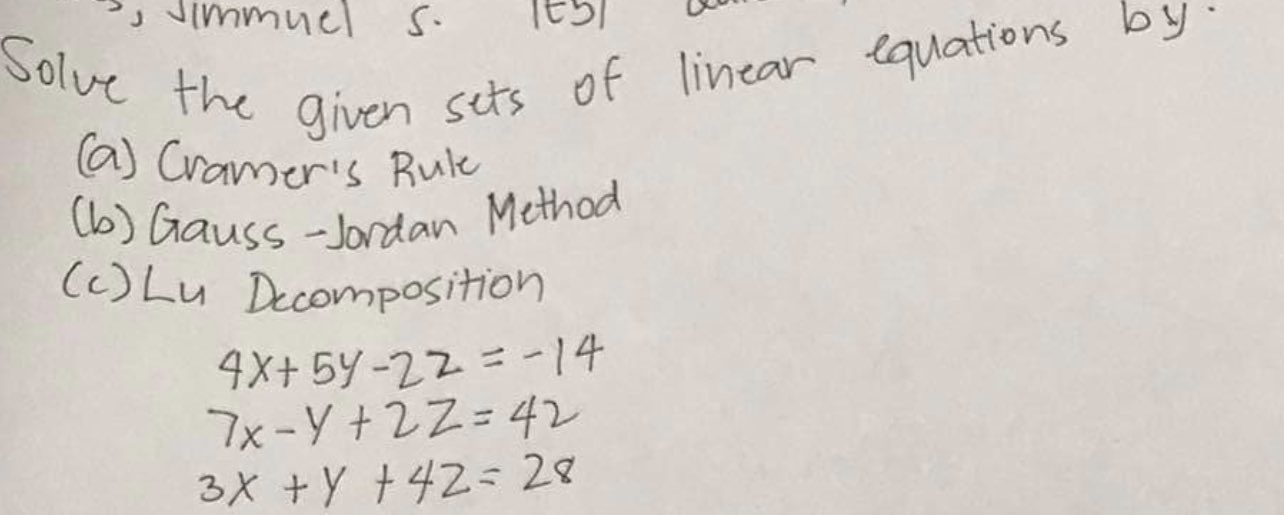 Jimmuel S.
Solve the given sets of linear equations by:
(a) Cramer's Rule
(b) Gauss-Jordan Method
(c) Lu Decomposition
4x+5y-2z=-14
7x-y+2z=42
3x+y+4z=28